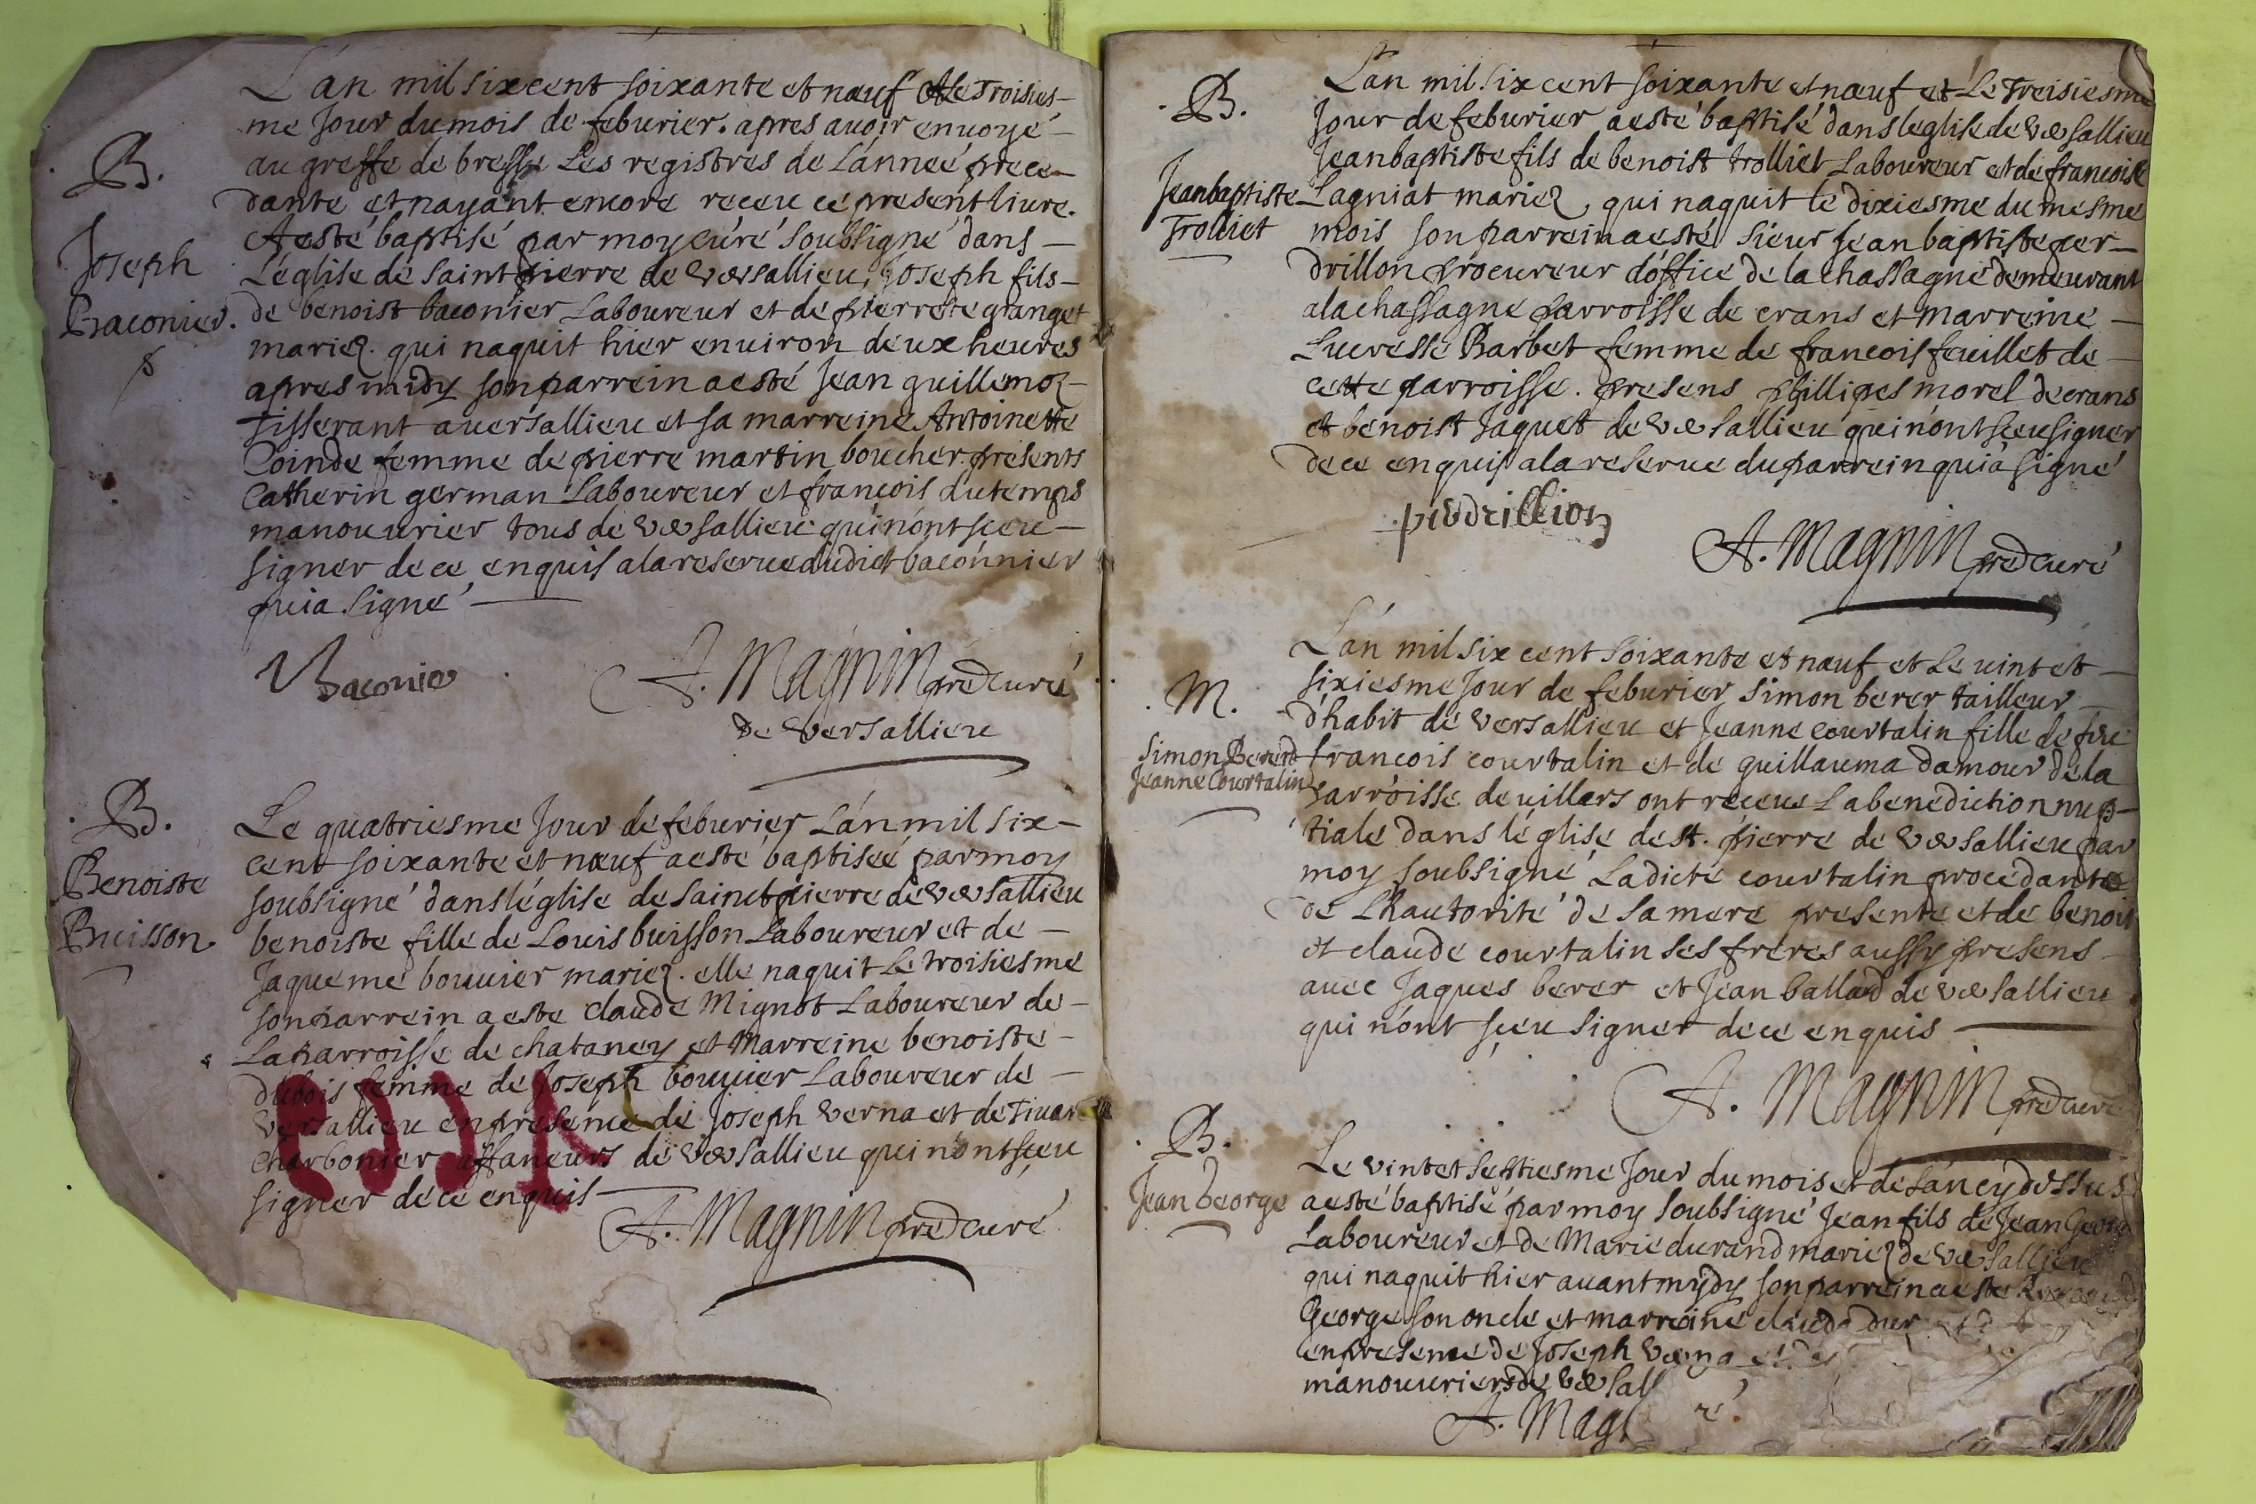 L'an mil six cent soixante et nœuf et le Troisies-
me Jour du mois de feburier. apres auoir enuoyé
au greffe de bresse Les registres de L'anneé prece-
dante et n'ayant encore receu ce present liure.
A esté baptisé par moy curé soubsigné dans
L'église de saint pierre de versallieu, Joseph fils
de benoist baconier Laboureur et de pierrete granget
mariez. qui naquit hier enuiron deux heures
apres midy son parrein a esté Jean guillemoz
Tisserant a versallieu et sa marreine Antoinette
Coinde femme de pierre martin boucher. presents
Catherin german Laboureur et francois dutemps
manouurier tous de versallieu qui n'ont sceu
signer de ce enquis a la reserue dudict baconnier
qui a signé
B.
Joseph
Baconier.
Baconier
A. Magnin pred curé
de versallieu
B.
Benoiste
Buisson
Le quatriesme Jour de feburier L'an mil six
cent soixante et nœuf a esté baptiseé par moy
soubsigné dans l'église de sainct pierre de versallieu
benoiste fille de Louis buisson Laboureur et de
Jaqueme bouuier mariez. elle naquit Le troisiesme
son parrein a este claude Mignot Laboureur de
La parroisse de chataney et Marreine benoiste
dubois femme de Joseph bouuier Laboureur de
versallieu en presence de Joseph verna et de Tiuar
charbonier affaneurs de versallieu qui n'ont sceu
signer de ce enquis
A. Magnin pred curé
B.
Jean baptiste
Trolliet
L'an mil six cent soixante et nœuf et Le Treisiesme
Jour de feburier a esté baptisé dans leglise de versallieu
Jean baptiste fils de benoist trolliet Laboureur et de francoise
Lagniat mariez, qui naquit le dixiesme du mesme
mois son parrein a esté sieur Jean baptiste per-
drillon procureur d'office de la chassagne demeurant
a la chassagne parroisse de crans et marreine
Lucresse Barbet femme de francois feuillet de
cette parroisse. presens phillipes morel de crans
et benoist Jaquet de versallieu qui n'ont sceu signer
de ce enquis a la reserue du parrein qui a signé
perdrillion
A. Magnin pred curé
M.
Simon Bererd
Jeanne Courtalin
L'an mil six cent soixante et nœuf et Le uint et
sixiesme Jour de feburier simon berer tailleur
d'habit de versallieu et Jeanne courtalin fille de feu
francois courtalin et de guillauma damour de la
parroisse de uillars ont receue La benediction nup-
tiale dans l'église de st. pierre de versallieu par
moy soubsigné Ladicte courtalin procedante
de L'hautorité de sa mere presente et de benoist
et claude courtalin ses freres aussy presens
auec Jaques berer et Jean ballard de versallieu
qui n'ont sceu signer de ce enquis
A. Magnin pred curé
B.
Jean George
Le vint et septiesme Jour du mois et de L'an cy dessus
a esté baptisé par moy soubsigné Jean fils de Jean George
Laboureur et de Marie durand mariez de versallieu
qui naquit hier auant mydy son parrein a este
George son oncle et marreine claude dur
en presence de Joseph verna et de
manouuriers de versall
A. Mag